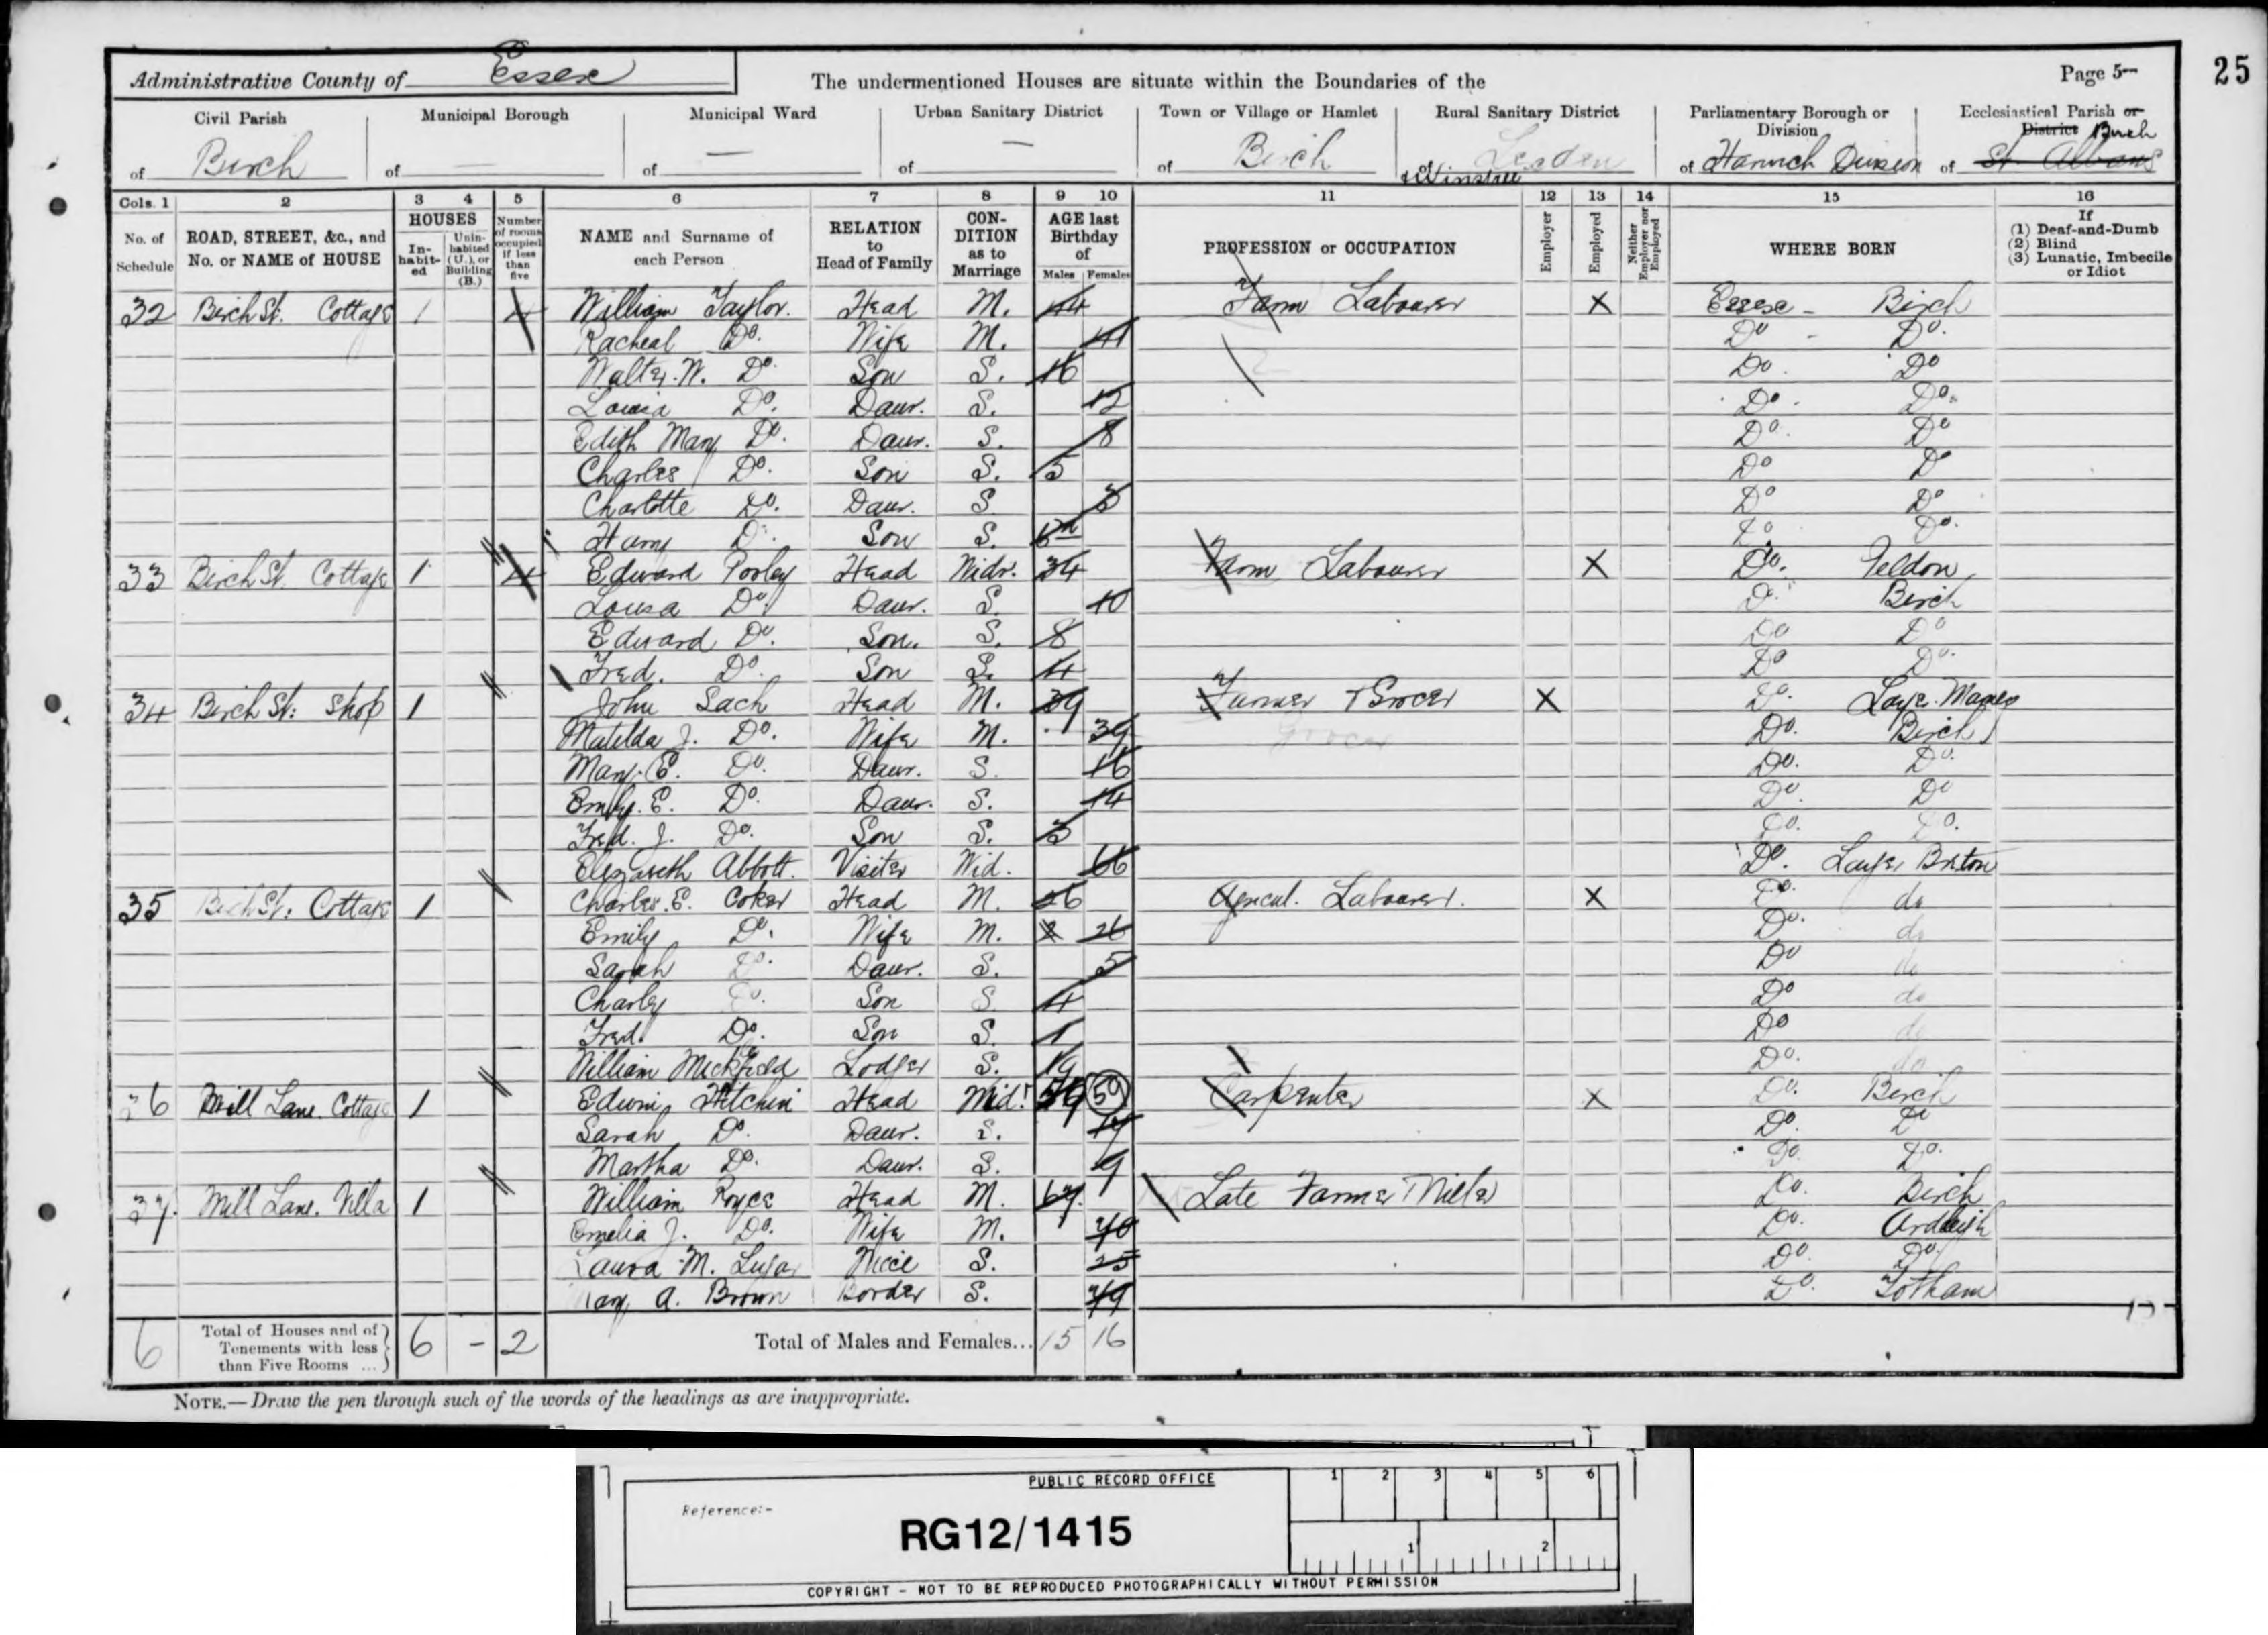 Administrative County of Essex
The undermentioned Houses are situate within the Boundaries of the
Page 5
25
Civil Parish of Birch
Municipal Borough of —
Municipal Ward of —
Urban Sanitary District of —
Town or Village or Hamlet of Birch
Rural Sanitary District of Lexden & Winstree
Parliamentary Borough or Division of Harwich Division
Ecclesiastical Parish or District of St. Albans Birch
Cols. 1 2 3 4 5 6 7 8 9 10 11 12 13 14 15 16
No. of Schedule
ROAD, STREET, &c., and No. or NAME of HOUSE
HOUSES
Inhabited
Uninhabited (U.), or Building (B.)
Number of rooms occupied if less than five
NAME and Surname of each Person
RELATION to Head of Family
CONDITION as to Marriage
AGE last Birthday of
Males Females
PROFESSION or OCCUPATION
Employer
Employed
Neither Employer nor Employed
WHERE BORN
If (1) Deaf-and-Dumb (2) Blind (3) Lunatic, Imbecile or Idiot
32 Birch St. Cottage 1 4 William Taylor. Head M. 44 Farm Labourer X Essex - Birch
Racheal Do. Wife M. 41 Do - Do.
Walter. W. Do. Son S. 16 Do. Do
Louisa Do. Daur. S. 12 Do - Do.
Edith Mary Do. Daur. S. 8 Do. Do
Charles Do. Son S. 5 Do Do
Charlotte Do. Daur. S 3 Do Do
Harry Do. Son S. 6m Do. Do.
33 Birch St. Cottage 1 4 Edward Pooley Head Widr. 34 Farm Labourer X Do. Peldon
Louisa Do Daur. S. 10 Do. Birch
Edward Do. Son. S. 8 Do Do
Fred. Do. Son S. 4 Do Do.
34 Birch St: Shop 1 John Sach Head M. 39 Farmer & Grocer X Do. Laye. Marney
Matilda J. Do. Wife M. 39 Grocer Do. Birch
Mary. E. Do. Daur. S. 16 Do. Do.
Emily. E. Do. Daur. S. 14 Do. Do
Fred. J. Do. Son S. 3 Do. Do.
Elizabeth Abbott. Visiter Wid. 66 Do. Layer Breton
35 Birch St: Cottage 1 Charles. E. Coker Head M. 26 Agricul. Labourer. X Do. do
Emily Do. Wife M. 26 Do. do
Sarah Do. Daur. S. 5 Do do
Charley Do. Son S. 4 Do do
Fred. Do. Son S. 1 Do do
William Mickfield Lodger S. 19 Do. do
36 Mill Lane. Cottage 1 Edwin Hitchin Head Wid. 59 59 Carpenter X Do. Birch
Sarah Do. Daur. S. 14 Do. Do
Martha Do. Daur. S. 9 Do. Do.
37. Mill Lane. Villa 1 William Royce Head M. 67. Late Farmer & Miller Do. Birch
Emelia J. Do. Wife M. 70 Do. Ardleigh
Laura M. Lugar Niece S. 25 Do. Do
Mary A. Brown Border S. 79 Do. Totham
6 Total of Houses and of Tenements with less than Five Rooms ... 6 - 2 Total of Males and Females... 15 16
NOTE.—Draw the pen through such of the words of the headings as are inappropriate.
PUBLIC RECORD OFFICE
1 2 3 4 5 6
Reference:-
RG12/1415
1 2
COPYRIGHT - NOT TO BE REPRODUCED PHOTOGRAPHICALLY WITHOUT PERMISSION